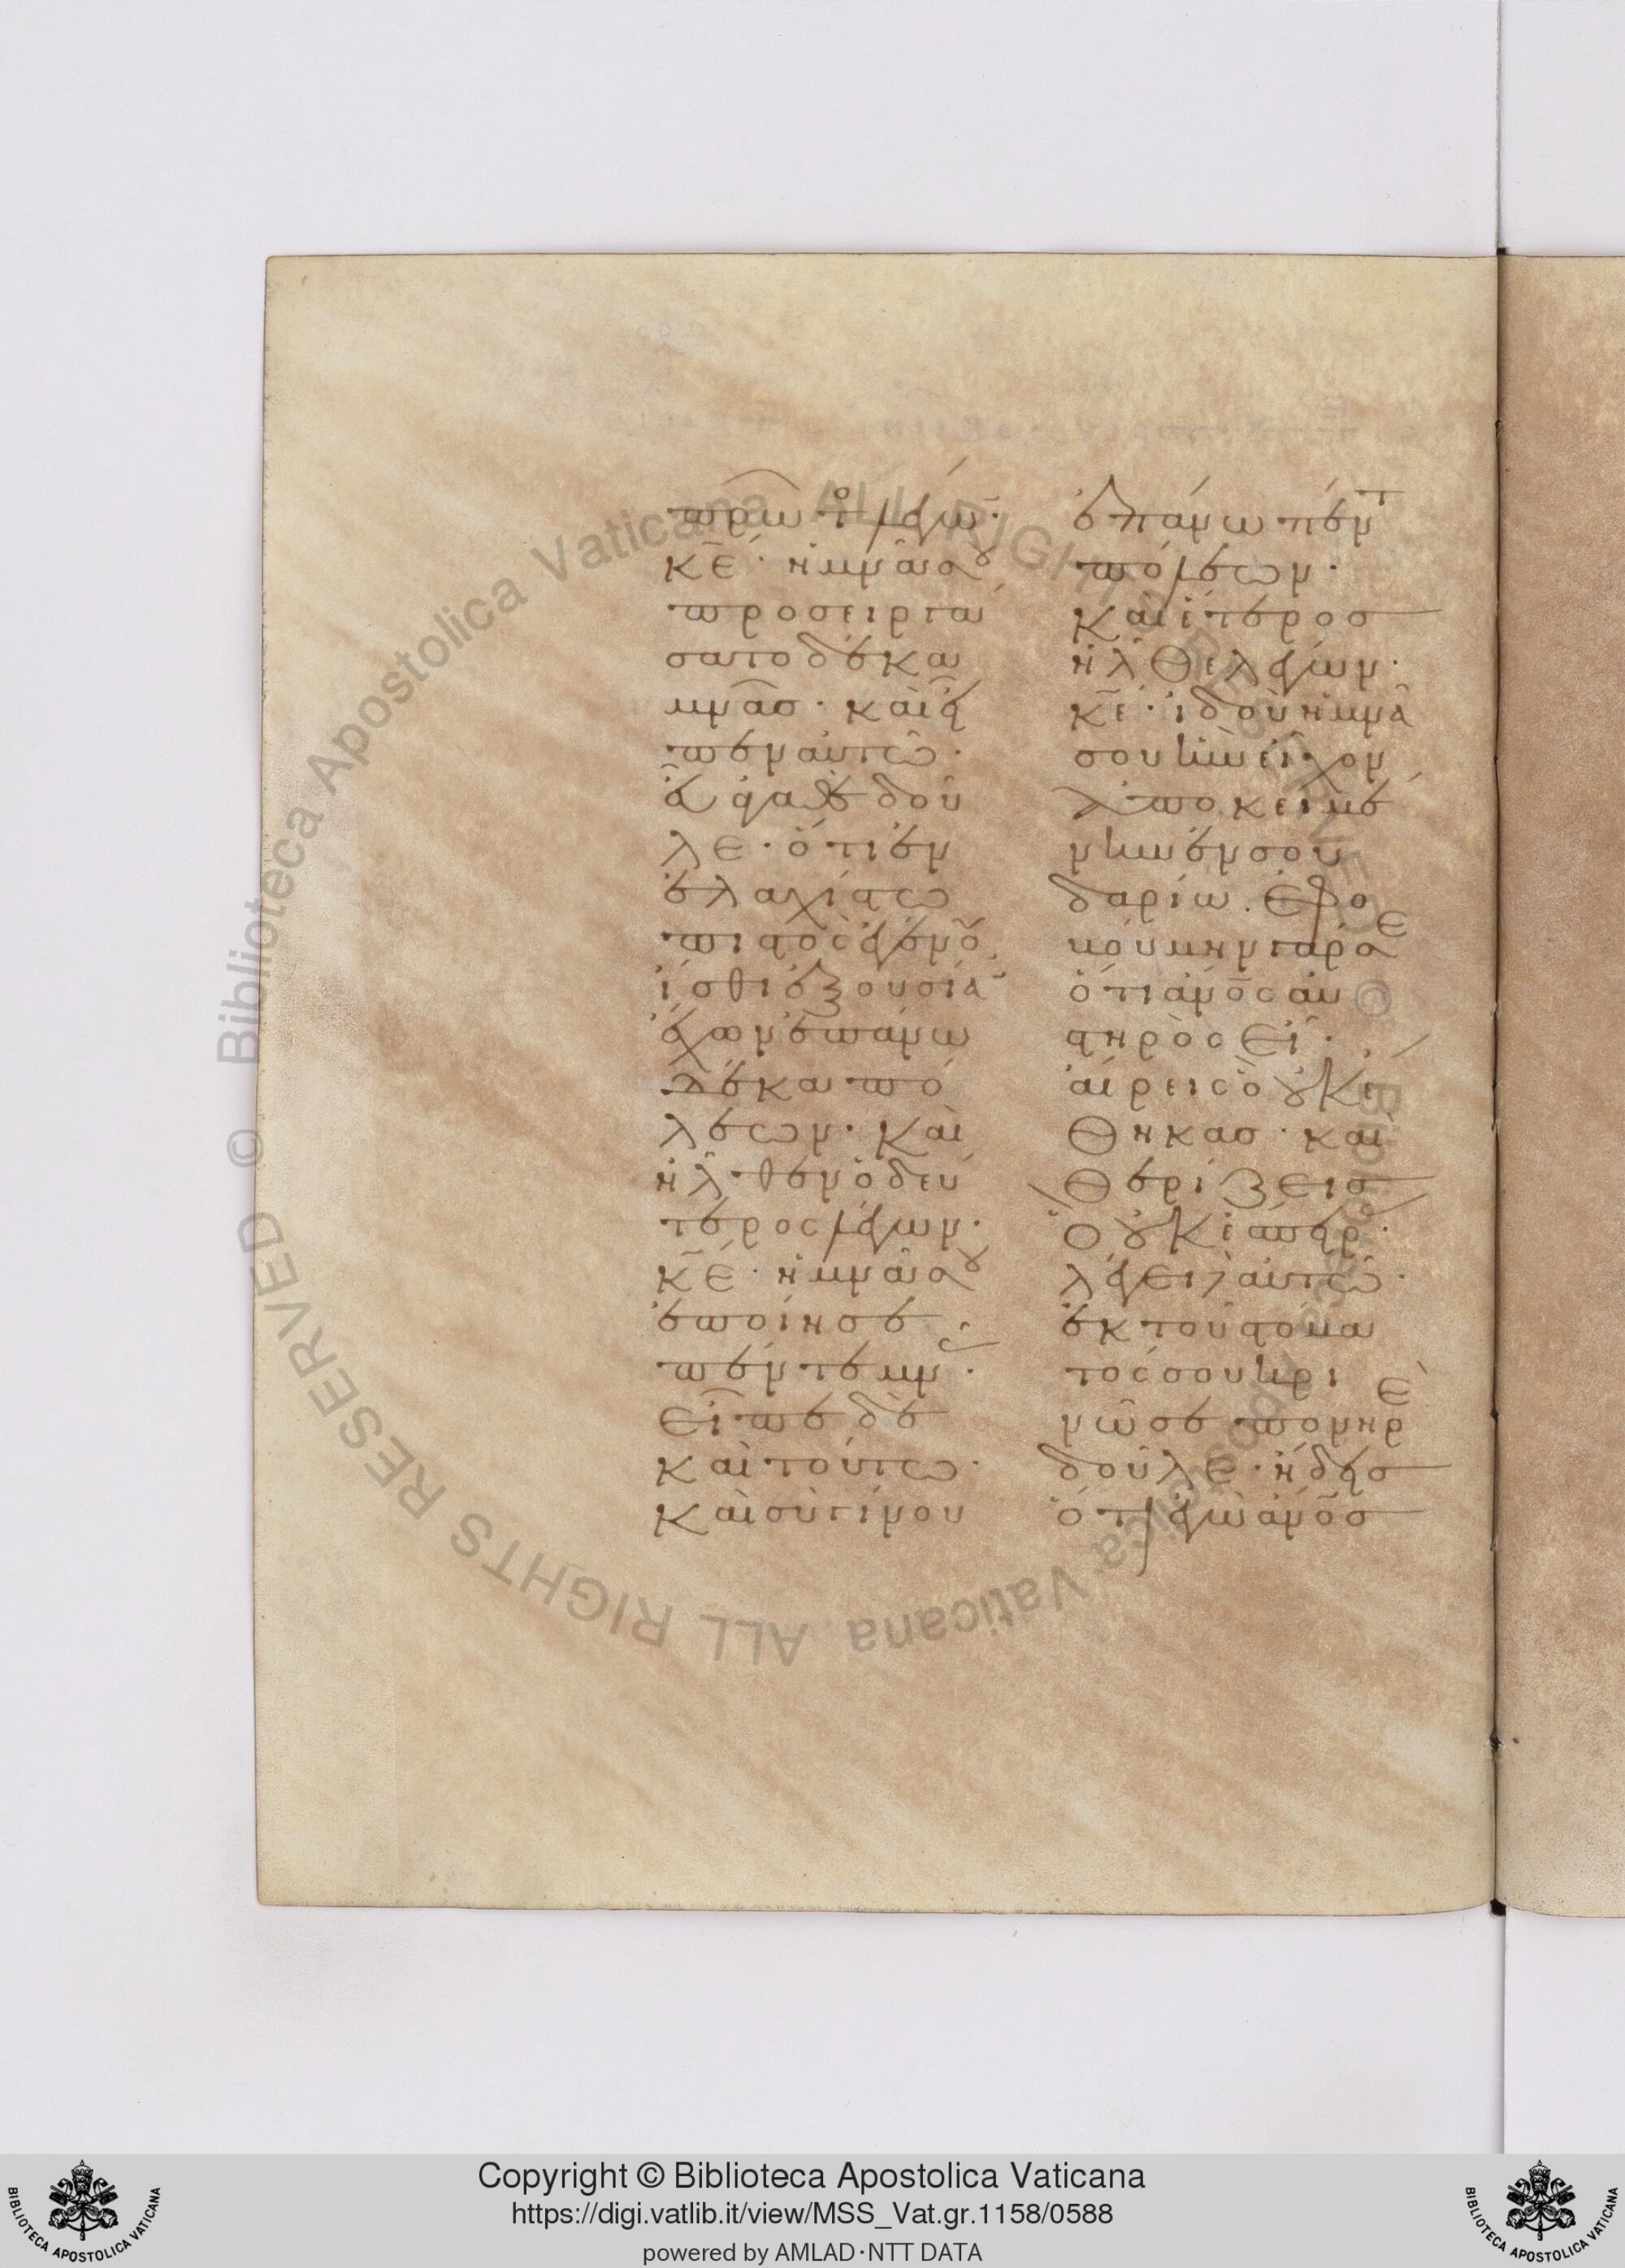 πρῶτος λέγων·
κ̅ε̅· ἡ μνᾶ σου
προσειργά
σατο δέκα
μνᾶς· καὶ εἶ
πεν αὐτῶ·
εὖ ἀγαθὲ δοῦ
λε· ὅτι ἐν
ἐλαχίστω
πιστὸς ἐγένου,
ἴσθι ἐξουσίαν
ἔχων ἐπάνω
δέκα πό
λεων· καὶ
ἦλθεν ὁ δεύ
τερος λέγων·
κ̅ε̅· ἡ μνᾶ σου
ἐποίησε
πέντε μν·
εἶπε δὲ
καὶ τούτω·
καὶ σὺ γίνου
ἐπάνω πέντ
πόλεων·
καὶ ἕτερος
ἦλθε λέγων·
κ̅ε̅· ἰδοὺ ἡ μνᾶ
σου ἣν εἶχον
ἀποκειμέ
νην ἐν σου
δαρίω. ἐφο
βούμην γάρ σε
ὅτι ἄνο̅ς αὐ
στηρὸς εἶ·
αἴρεις ὃ οὐκ ἔ
θηκας· καὶ
θερίζεις
ὃ οὐκ ἔσπειρ·
λέγει αὐτῶ·
ἐκ τοῦ στόμα
τός σου κρι
νῶ σε πονηρὲ
δοῦλε· ἤδεις
ὅτι ἐγὼ ἄνο̅ς
Copyright © Biblioteca Apostolica Vaticana
https://digi.vatlib.it/view/MSS_Vat.gr.1158/0588
powered by AMLAD·NTT DATA
BIBLIOTECA APOSTOLICA VATICANA
BIBLIOTECA APOSTOLICA VATICANA
© Biblioteca Apostolica Vaticana ALL RIGHTS RESERVED © Biblioteca Apostolica Vaticana ALL RIGHTS RESERVED